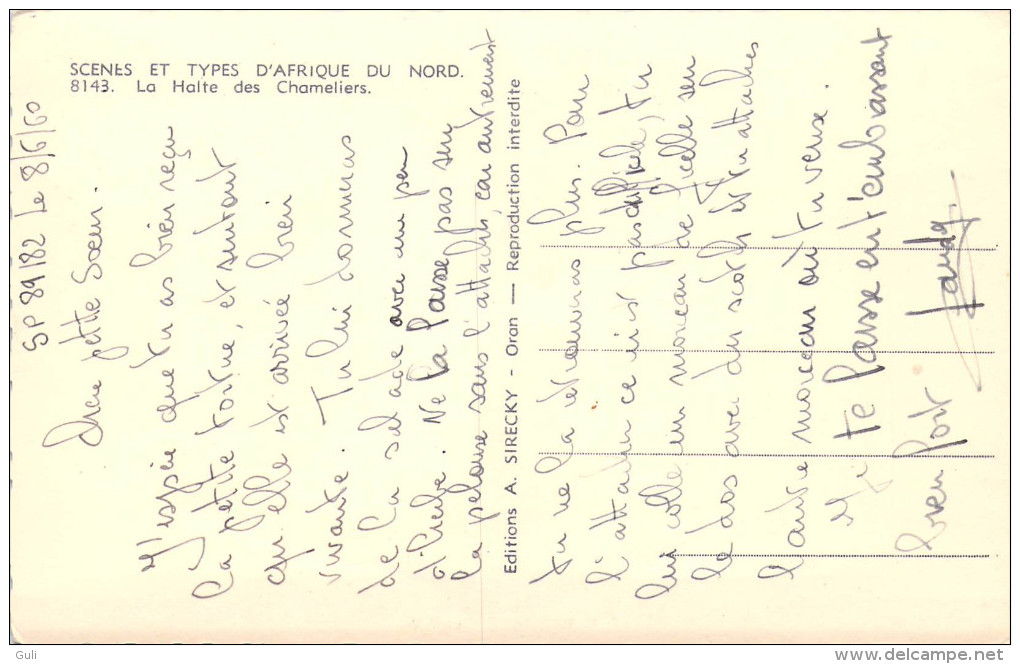 SCENES ET TYPES D'AFRIQUE DU NORD.
8143. La Halte des Chameliers.
SP 89182 Le 8/6/60
petite Soeur.
J'espère que tu as bien reçu
la petite tortue, et surtout
qu'elle est arrivée bien
vivante. Tu lui donneras
de la salade avec un peu
d'herbe. Ne la laisse pas sur
la pelouse sans l'attacher, car autrement
Editions A. SIRECKY - Oran — Reproduction interdite
tu ne la retrouveras plus. Pour
l'attacher ce n'est pas difficile, tu
lui colle un morceau de ficelle sur
le dos avec du scotch et tu attaches
l'autre morceau où tu veux.
Je te laisse en t'embrassant
bien fort
Guli